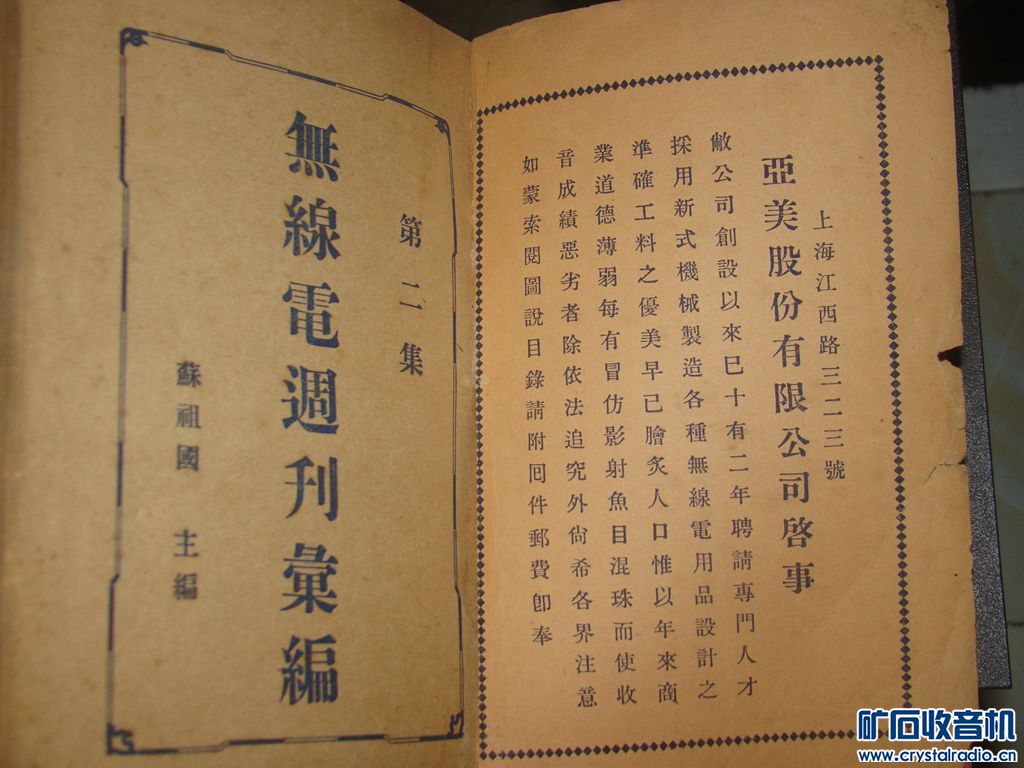 上海江西路三二三號
亞美股份有限公司啓事
敝公司創設以來已十有二年聘請專門人才
採用新式機械製造各種無線電用品設計之
準確工料之優美早已膾炙人口惟以年來商
業道德薄弱每有冒仿影射魚目混珠而使收
音成績惡劣者除依法追究外尙希各界注意
如蒙索閱圖說目錄請附囘件郵費卽奉
第二集
無線電週刊彙編
蘇祖國 主編
矿石收音机
www.crystalradio.cn